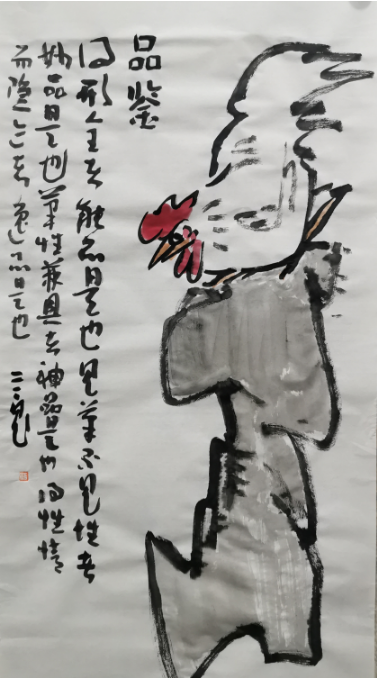 品鉴
得形全者能品是也见筆不见性者
妙品是也筆性兼具者神品是也得性情
而隐者逸品是也